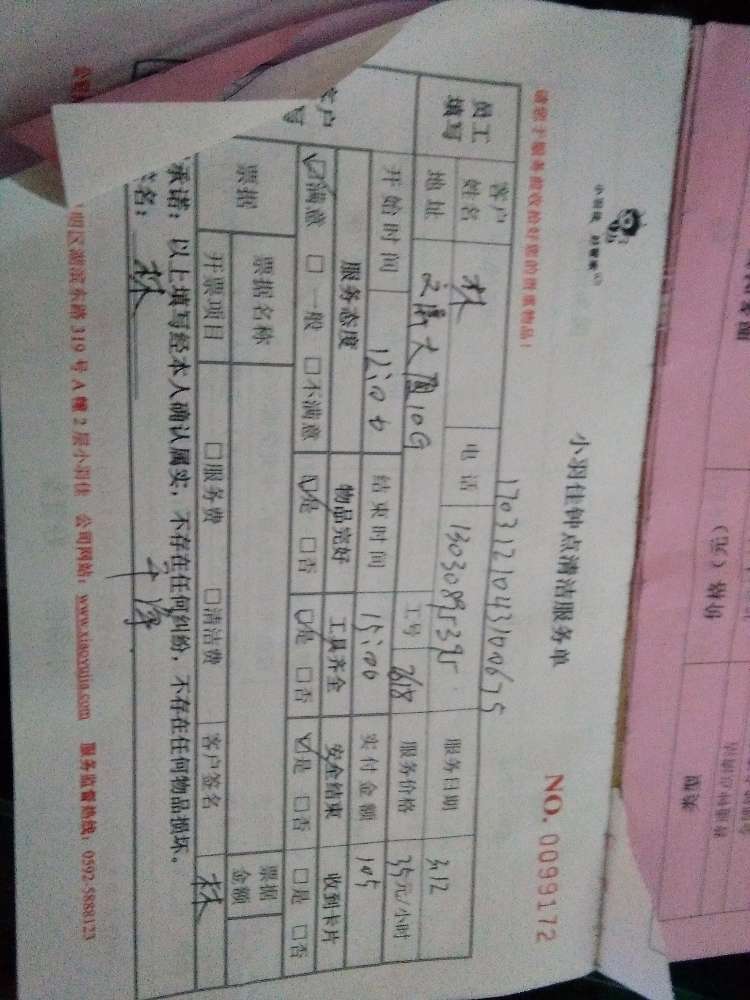 小羽佳 好管家
小羽佳钟点清洁服务单
NO. 0099172
请您于服务前收拾好您的贵重物品！
1703121043100675
员工填写 客户姓名 林 电话 13030895395 服务日期 3.12
地址 10G 工号 2618 服务价格 35元/小时
开始时间 12:00 结束时间 15:00 实付金额 105
服务态度 物品完好 工具齐全 安全结束 收到卡片
☑满意 □一般 □不满意 ☑是 □否 ☑是 □否 ☑是 □否 □是 □否
票据 票据名称 票据金额
开票项目 □服务费 □清洁费 客户签名 林
承诺：以上填写经本人确认属实，不存在任何纠纷，不存在任何物品损坏。
签名：林
明区湖滨东路 319 号 A 幢 2 层小羽佳 公司网站：www.xiaoyujia.com 服务监督热线：0592-5888123
价格（元）
类型